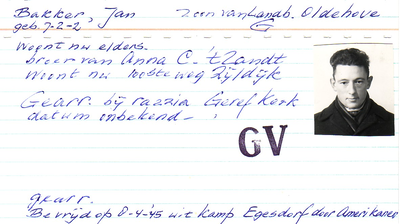 Bakker, Jan zoon van Landb. Oldehove
geb. 7-2-2 G
Woont nu elders.
broer van Anna C. 't Zandt
Woont nu Oosteweg Zijldijk
Gearr. bij razzia Geref Kerk
datum onbekend -
GV
gearr.
Bevrijd op 8-4-'45 uit kamp Egesdorf door Amerikanen